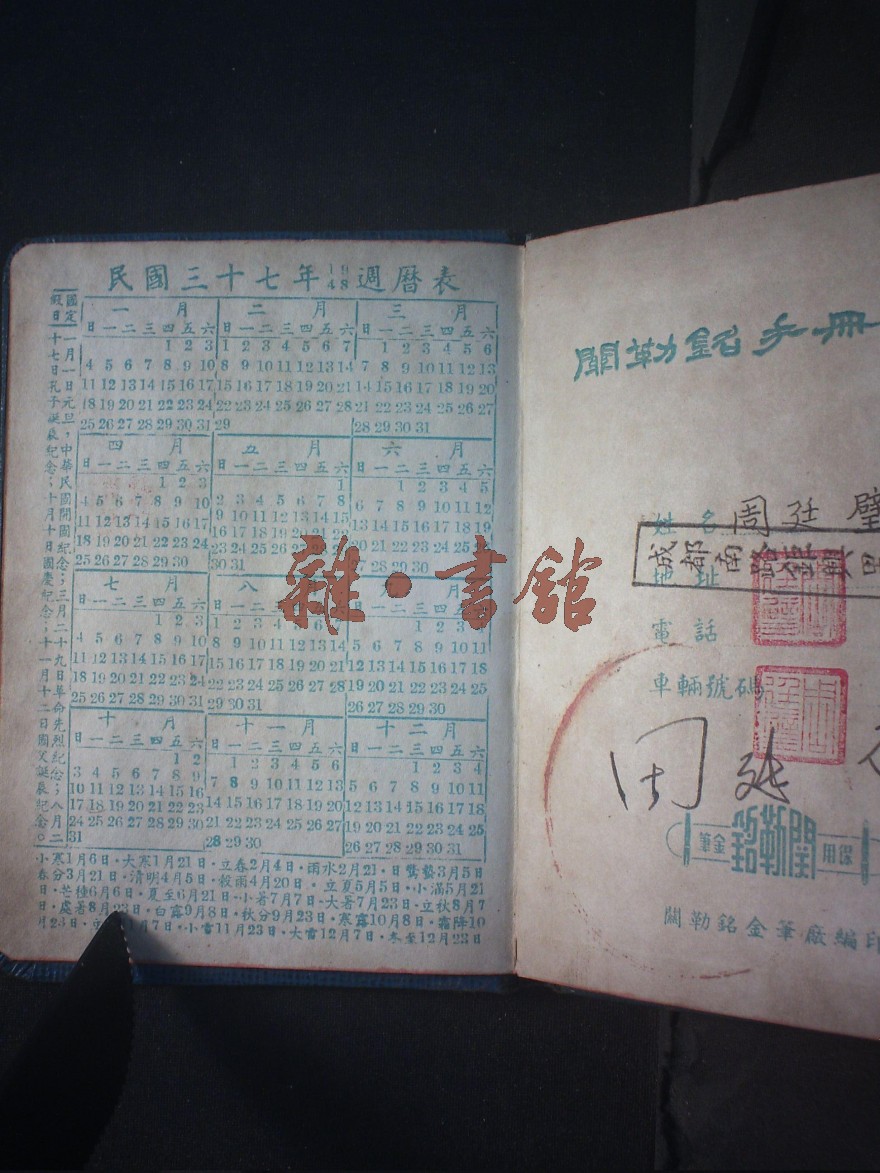 民國三十七年1948週曆表
國定假日
一月一日元旦,中華民國開國紀念;三月二十九日革命先烈紀念;八月二
十七日孔子誕辰紀念;十月十日國慶紀念;十一月十二日國父誕辰紀念。
一月 二月 三月
日一二三四五六 日一二三四五六 日一二三四五六
1 2 3 1 2 3 4 5 6 7 1 2 3 4 5 6
4 5 6 7 8 9 10 8 9 10 11 12 13 14 7 8 9 10 11 12 13
11 12 13 14 15 16 17 15 16 17 18 19 20 21 14 15 16 17 18 19 20
18 19 20 21 22 23 24 22 23 24 25 26 27 28 21 22 23 24 25 26 27
25 26 27 28 29 30 31 29 28 29 30 31
四月 五月 六月
日一二三四五六 日一二三四五六 日一二三四五六
1 2 3 1 1 2 3 4 5
4 5 6 7 8 9 10 2 3 4 5 6 7 8 6 7 8 9 10 11 12
11 12 13 14 15 16 17 9 10 11 12 13 14 15 13 14 15 16 17 18 19
18 19 20 21 22 23 24 16 17 18 19 20 21 22 20 21 22 23 24 25 26
25 26 27 28 29 30 23 24 25 26 27 28 29 27 28 29 30
30 31
七月 八 月
日一二三四五六 日一二 一二三四五六
1 2 3 1 2 3 4 5 6 7 1 2 3 4
4 5 6 7 8 9 10 8 9 10 11 12 13 14 5 6 7 8 9 10 11
11 12 13 14 15 16 17 15 16 17 18 19 20 21 12 13 14 15 16 17 18
18 19 20 21 22 23 24 22 23 24 25 26 27 28 19 20 21 22 23 24 25
25 26 27 28 29 30 31 29 30 31 26 27 28 29 30
十月 十一月 十二月
日一二三四五六 日一二三四五六 日一二三四五六
1 2 1 2 3 4 5 6 1 2 3 4
3 4 5 6 7 8 9 7 8 9 10 11 12 13 5 6 7 8 9 10 11
10 11 12 13 14 15 16 14 15 16 17 18 19 20 12 13 14 15 16 17 18
17 18 19 20 21 22 23 21 22 23 24 25 26 27 19 20 21 22 23 24 25
24 25 26 27 28 29 30 28 29 30 26 27 28 29 30 31
31
小寒1月6日·大寒1月21日·立春2月4日·雨水2月21日·驚蟄3月5日
春分3月21日·清明4月5日·穀雨4月20日·立夏5月5日·小滿5月21
日·芒種6月6日·夏至6月21日·小暑7月7日·大暑7月23日·立秋8月7
日·處暑8月23日·白露9月8日·秋分9月23日·寒露10月8日·霜降10
月23日·立 月7日·小雪11月23日·大雪12月7日·冬至12月23日
雜·書館
關勒銘手冊
姓名 周廷璧
成都南
地址
電話
車輛號碼
周廷
金筆 關勒銘 課用
關勒銘金筆廠編印